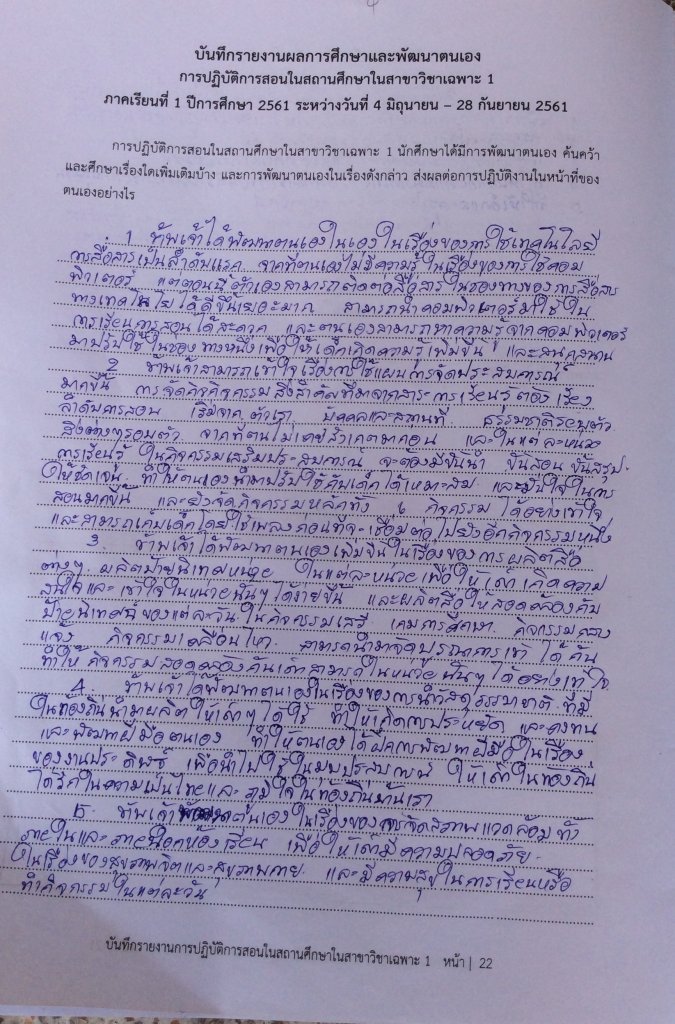 บันทึกรายงานผลการศึกษาและพัฒนาตนเอง
การปฏิบัติการสอนในสถานศึกษาในสาขาวิชาเฉพาะ 1
ภาคเรียนที่ 1 ปีการศึกษา 2561 ระหว่างวันที่ 4 มิถุนายน – 28 กันยายน 2561
การปฏิบัติการสอนในสถานศึกษาในสาขาวิชาเฉพาะ 1 นักศึกษาได้มีการพัฒนาตนเอง ค้นคว้า
และศึกษาเรื่องใดเพิ่มเติมบ้าง และการพัฒนาตนเองในเรื่องดังกล่าว ส่งผลต่อการปฏิบัติงานในหน้าที่ของ
ตนเองอย่างไร
1 ข้าพเจ้าได้พัฒนาตนเองในเองในเรื่องของการใช้เทคโนโลยี
การสื่อสารเป็นลำดับแรก จากที่ตนเองไม่มีความรู้ในเรื่องของการใช้คอม
พิวเตอร์ แต่ตอนนี้ตัวเองสามารถติดต่อสื่อสารในช่องทางของการสื่อสาร
ทางเทคโนโลยีได้ดีขึ้นเยอะมาก สามารถนำคอมพิวเตอร์มาใช้ใน
การเรียนการสอนได้สะดวก และตนเองสามารถหาความรู้จากคอมพิวเตอร์
มาปรับใช้ในช่องทางหนึ่งเพื่อให้เด็กเกิดความรู้เพิ่มขึ้น และสนุกสนาน
2 ข้าพเจ้าสามารถเข้าใจเรื่องการใช้แผนการจัดประสบการณ์
มากขึ้น การจัดกิจกิจกรรมสิ่งสำคัญที่มาจากสาระการเรียนรู้ต้องเรียง
ลำดับการสอน เริ่มจาก ตัวเรา บุคคลและสถานที่ ธรรมชาติรอบตัว
สิ่งต่างๆรอบตัว จากที่ตนไม่เคยสังเกตมาก่อน และในแต่ละหน่วย
การเรียนรู้ ในกิจกรรมเสริมประสบการณ์ จะต้องมีขั้นนำ ขั้นสอน ขั้นสรุป
ให้ชัดเจน ทำให้ตนเองนำมาปรับใช้กับเด็กได้เหมาะสม และมั่นใจในการ
สอนมากขึ้น และยังจัดกิจกรรมหลักทั้ง 6 กิจกรรม ได้อย่างเข้าใจ
และสามารถเก็บเด็กโดยใช้เพลงก่อนที่จะเชื่อมต่อไปยังอีกกิจกรรมหนึ่ง
3 ข้าพเจ้าได้พัฒนาตนเองเพิ่มขึ้นในเรื่องของการผลิตสื่อ
ต่างๆ ผลิตป้ายนิเทศหน่วย ในแต่ละหน่วย เพื่อให้เด็กเกิดความ
สนใจและเข้าใจในหน่วยนั้นๆได้ง่ายขึ้น และผลิตสื่อให้สอดคล้องกับ
ป้ายนิเทศน์ของแต่ละวัน ในกิจกรรมเสรี เกมการศึกษา กิจกรรมกลาง
แจ้ง กิจกรรมเคลื่อนไหว สามารถนำมาจัดบูรณาการเข้าได้กัน
ทำให้กิจกรรมสอดคล้องกันเด็กสามารถในหน่วยนั้นๆได้อย่างเข้าใจ
4 ข้าพเจ้าได้พัฒนาตนเองในเรื่องของการนำวัสดุธรรมชาติ ที่มี
ในท้องถิ่นนำมาผลิตให้เด็กๆได้ใช้ ทำให้เกิดการประหยัด และคงทน
และพัฒนาฝีมือตนเอง ทำให้ตนเองได้ฝึกการพัฒนาฝีมือในเรื่อง
ของงานประดิษฐ์ เพื่อนำไปใช้ในมุมประสบการณ์ ให้เด็กในท้องถิ่น
ได้รักในความเป็นไทยและภูมิใจในท้องถิ่นบ้านเรา
5 ข้าพเจ้า ตนเองในเรื่องของการจัดสภาพแวดล้อมทั้ง
ภายในและภายนอกห้องเรียน เพื่อให้เด็กมีความปลอดภัย
ในเรื่องของสุขภาพจิตและสุขภาพกาย และมีความสุขในการเรียนหรือ
ทำกิจกรรมในแต่ละวัน
บันทึกรายงานการปฏิบัติการสอนในสถานศึกษาในสาขาวิชาเฉพาะ 1 หน้า | 22